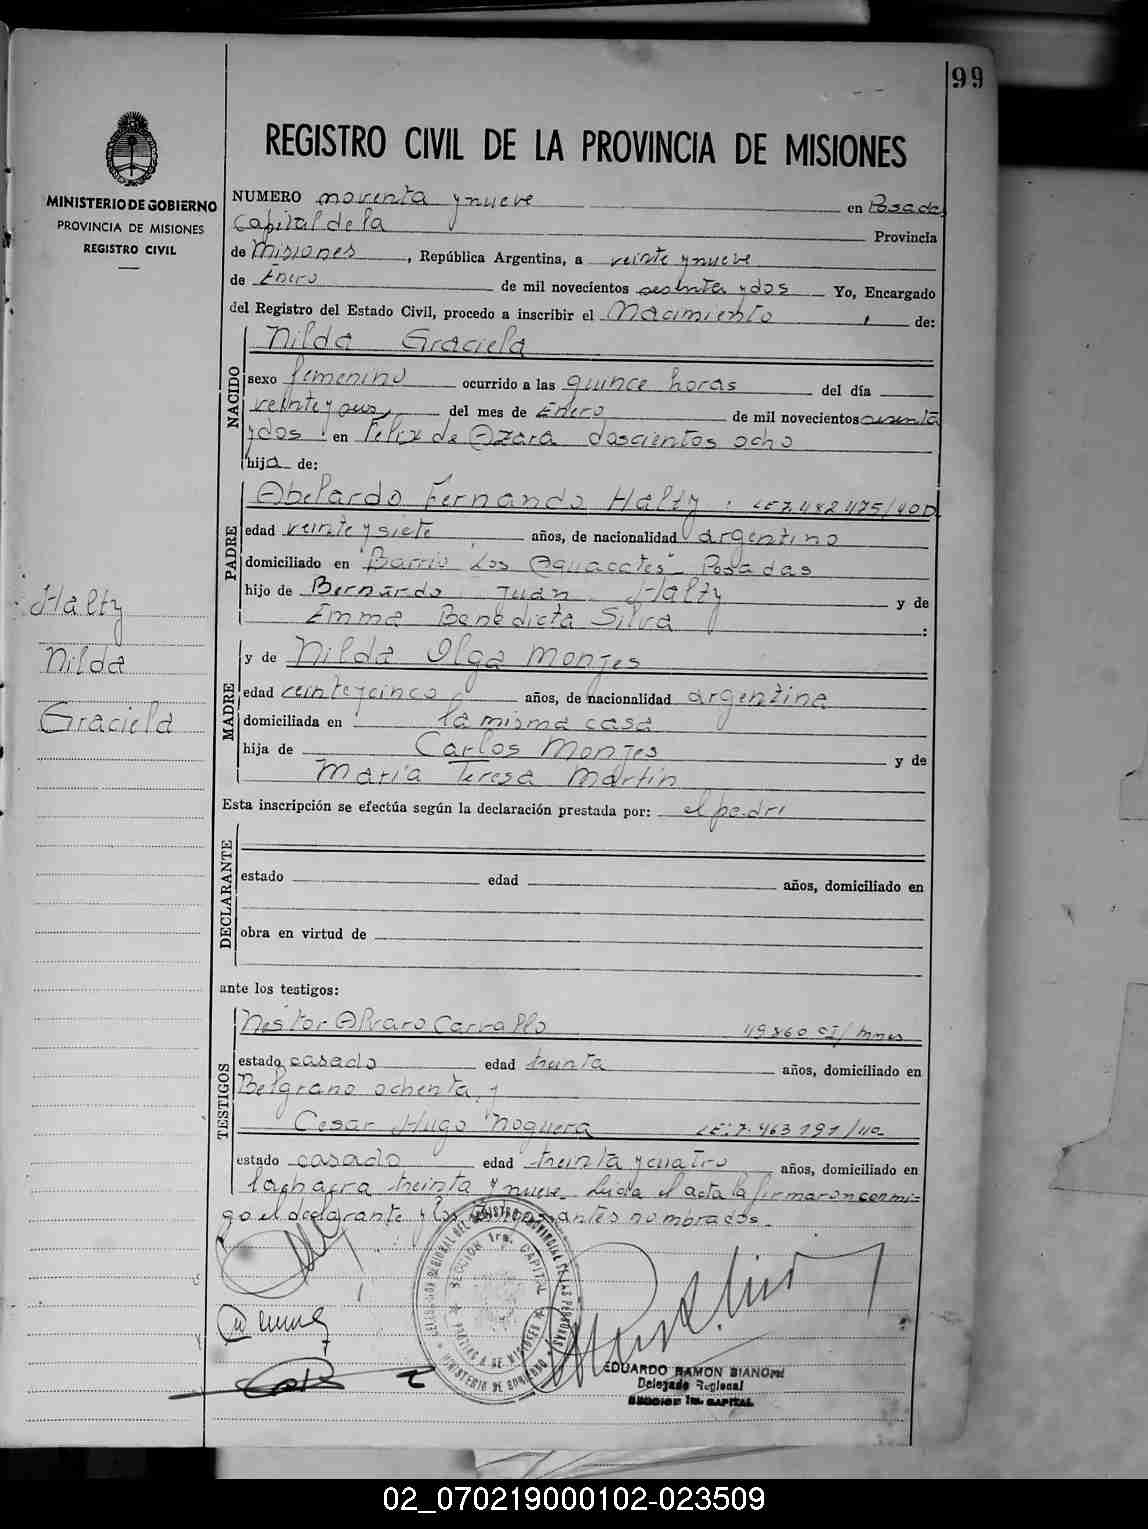 99
REGISTRO CIVIL DE LA PROVINCIA DE MISIONES
MINISTERIO DE GOBIERNO
PROVINCIA DE MISIONES
REGISTRO CIVIL
NUMERO noventa y nueve en Posadas
Capital de la Provincia
de Misiones, República Argentina, a veinte y nueve
de Enero de mil novecientos sesenta y dos Yo, Encargado
del Registro del Estado Civil, procedo a inscribir el Nacimiento, de:
NACIDO
Nilda Graciela
sexo femenino ocurrido a las quince horas del día
veinte y seis, del mes de Enero de mil novecientos sesenta
y dos en Felix de Azara doscientos ocho
hija de:
PADRE
Abelardo Fernando Halty: LE 7.482.475/40D
edad veinte y siete años, de nacionalidad argentino
domiciliado en "Barrio Los Aguacates" Posadas
hijo de Bernardo Juan Halty y de
Emma Benedicta Silva :
MADRE
y de Nilda Olga Monjes
edad veinte y cinco años, de nacionalidad argentina
domiciliada en la misma casa
hija de Carlos Monjes y de
Maria Teresa Martin
Halty
Nilda
Graciela
Esta inscripción se efectúa según la declaración prestada por: el padre
DECLARANTE
estado edad años, domiciliado en
obra en virtud de
ante los testigos:
TESTIGOS
Nestor Alvaro Carvallo 49860 CI/Mnes
estado casado edad treinta años, domiciliado en
Belgrano ochenta y
Cesar Hugo Noguera LE: 7.463.191/40
estado casado edad treinta y cuatro años, domiciliado en
Lachacra treinta y nueve. Leida el acta la firmaron conmi=
go el declarante y los testigos antes nombrados.
DELEGACION REGIONAL DEL REGISTRO PROVINCIAL DE LAS PERSONAS
SECCION 1ra. CAPITAL
PROVINCIA DE MISIONES
MINISTERIO DE GOBIERNO
EDUARDO RAMON BIANCHI
Delegado Regional
SECCION 1ra. CAPITAL
02_070219000102-023509